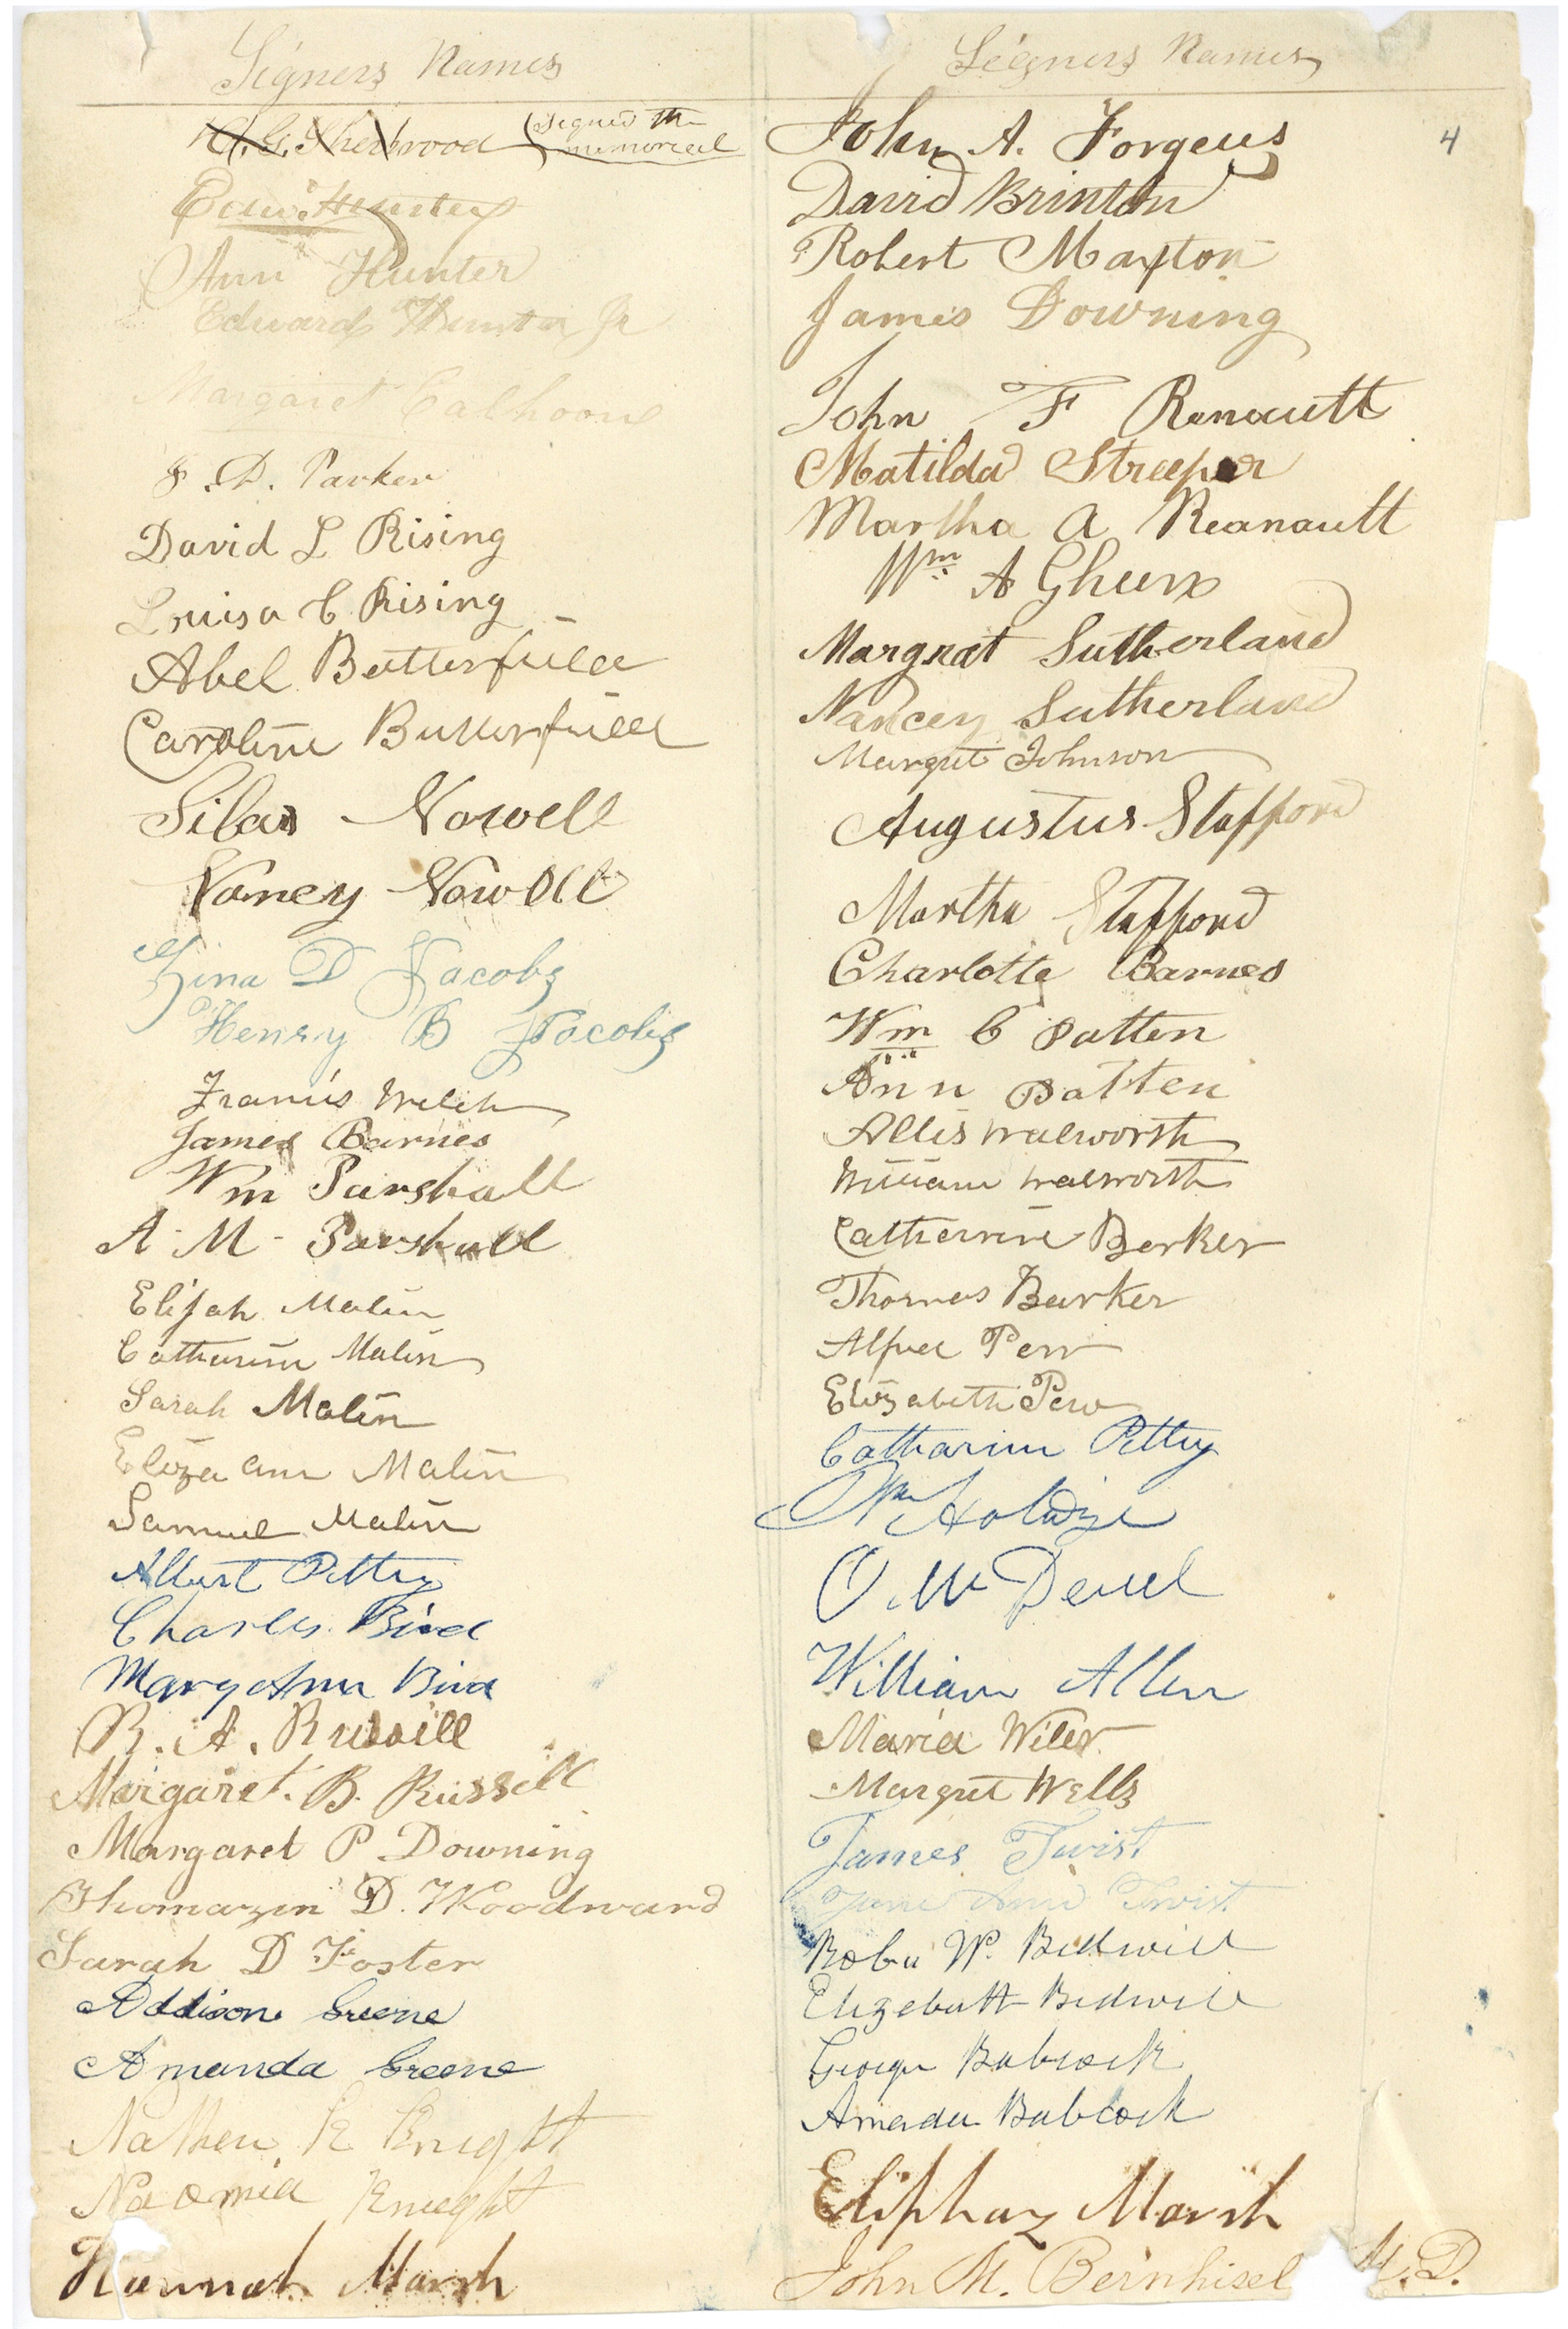 Signers Names
H. G. Sherwood (signed the
memorial
Edw. Hunter
Ann Hunter
Edward Hunter Jr
Margaret Calhoone
F. D. Parker
David L Rising
Louisa C Rising
Abel Butterfield
Caroline Butterfield
Silas Nowell
Nancy Nowell
Zina D Jacobs
Henry B Jacobs
Francis Welch
James Barnes
Wm Parshall
A - M - Parshall
Elijah Malin
Catharine Malin
Sarah Malin
Eliza ann Malin
Samuel Malin
Albert Petty
Charles Bird
Mary Ann Bird
R. A. Russell
Margaret. B. Russell
Margaret P Downing
Thomazin D. Woodward
Sarah D Foster
Addison Greene
Amanda Greene
Nathen K Knight
Naomia Knight
Hannah Marsh
Signers Names
4
John A. Forgeus
David Brinton
Robert Maxton
James Downing
John F Renault
Matilda Streeper
Martha A Reanault
Wm A
Margrat Sutherland
Nancey Sutherland
Margret Johnson
Augustus Stafford
Martha Stafford
Charlotte Barnes
Wm C Patten
Ann Patten
Allis Walworth
William Walworth
Catherine Barker
Thomas Barker
Alfred Perr
Elizabeth Pew
Catharine Petty
Wm
O. M Deuel
William Allen
Maria Wiler
Margret Wells
James Twist
Jane Ann Twist
W. Bidwell
Elizebath Bidwell
George Babcock
Amada Babcock
Eliphaz Marsh
John M. Bernhisel M. D.